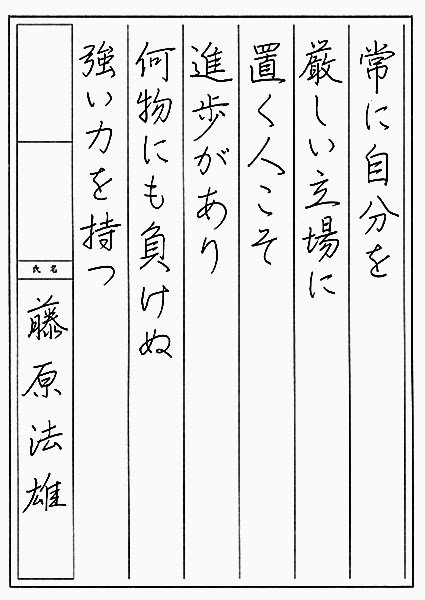 常に自分を
厳しい立場に
置く人こそ
進歩があり
何物にも負けぬ
強い力を持つ
氏名
藤原法雄